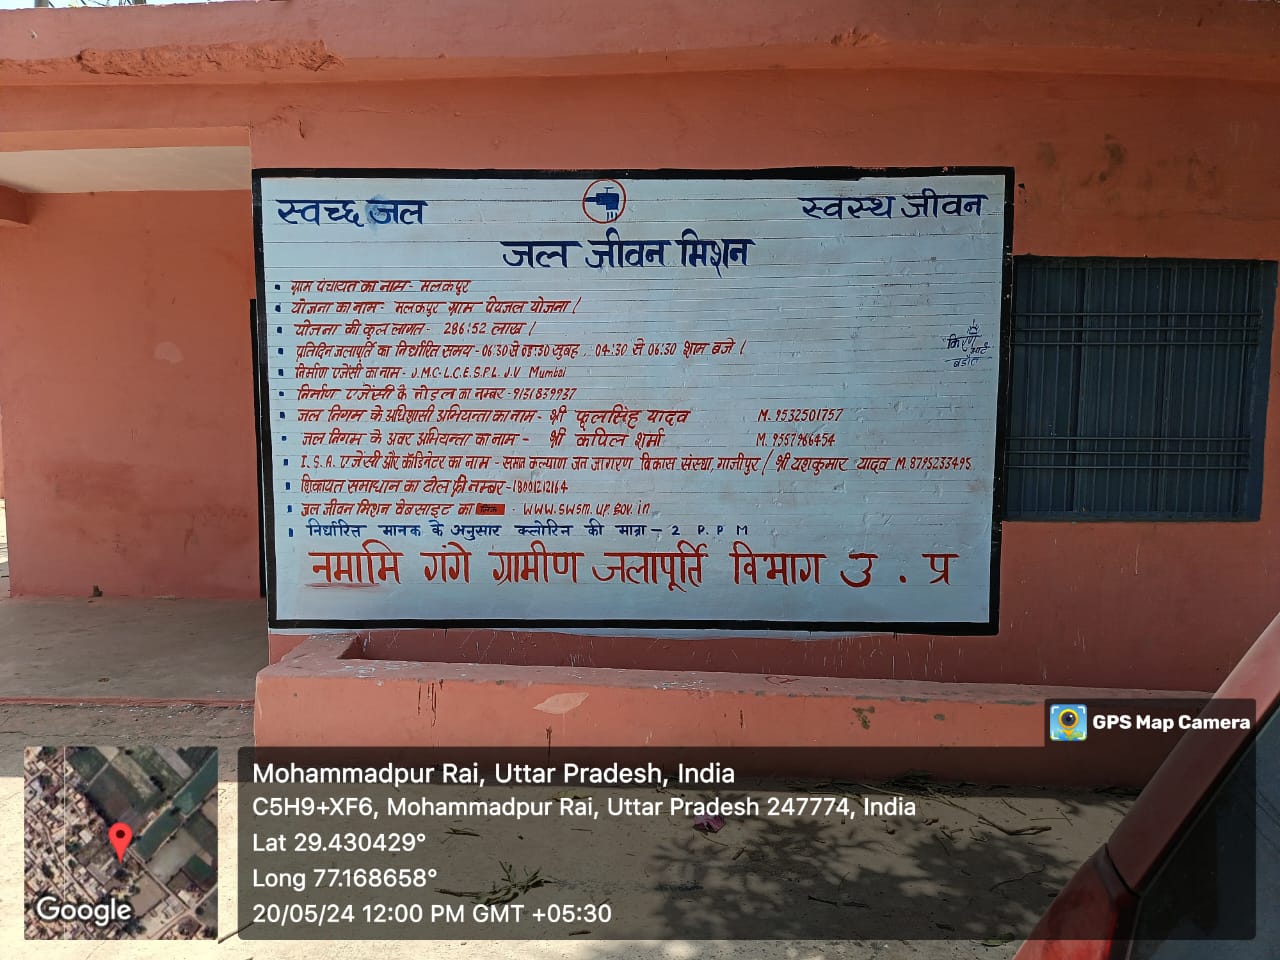 स्वच्छ जल
स्वस्थ जीवन
जल जीवन मिशन
ग्राम पंचायत का नाम - मलकपुर
योजना का नाम - मलकपुर ग्राम पेयजल योजना।
योजना की कुल लागत - 286.52 लाख।
प्रतिदिन जलापूर्ति का निर्धारित समय - 06:30 से 08:30 सुबह, 04:30 से 06:30 शाम बजे।
निर्माण एजेंसी का नाम - J.M.C-L.C.E.S.P.L. J.V Mumbai
निर्माण एजेंसी के नोडल का नम्बर - 9151839937
जल निगम के अधिशासी अभियन्ता का नाम - श्री फूलसिंह यादव M. 9532501757
जल निगम के अवर अभियन्ता का नाम - श्री कपिल शर्मा M. 9557966454
I.S.A. एजेंसी और कॉडिनेटर का नाम - समाज कल्याण जन जागरण विकास संस्था, गाजीपुर / श्री यशकुमार यादव M. 8795233495
शिकायत समाधान का टोल फ्री नम्बर - 18001212164
जल जीवन मिशन वेबसाइट का लिंक - www.swsm.up.gov.in
निर्धारित मानक के अनुसार क्लोरिन की मात्रा - 2 P.P M
नमामि गंगे ग्रामीण जलापूर्ति विभाग उ . प्र
GPS Map Camera
Mohammadpur Rai, Uttar Pradesh, India
C5H9+XF6, Mohammadpur Rai, Uttar Pradesh 247774, India
Lat 29.430429°
Long 77.168658°
20/05/24 12:00 PM GMT +05:30
Google